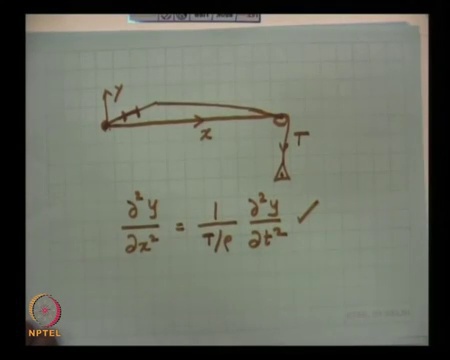 y
x
T
∂²y/∂x² = 1/(T/ρ) ∂²y/∂t² ✓
NPTEL